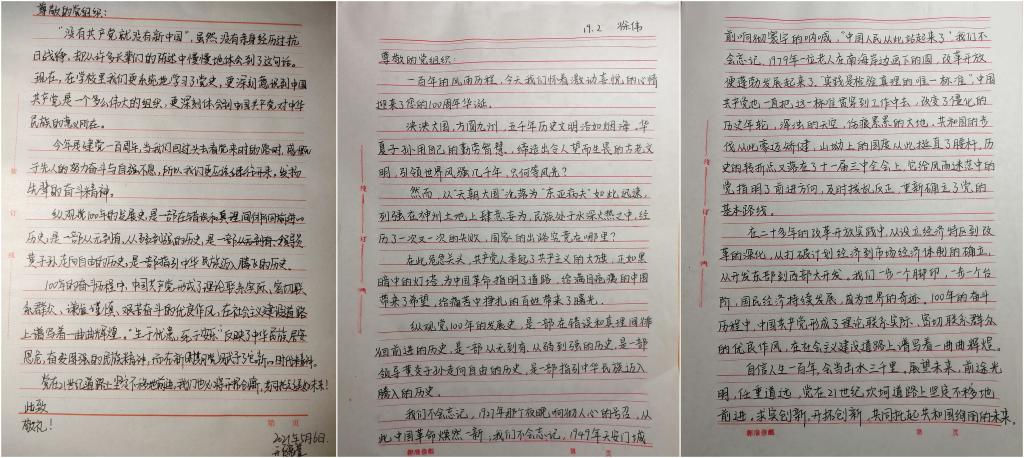 尊敬的党组织：
"没有共产党就没有新中国"，虽然没有亲身经历过抗
日战争，却从好多长辈们的陈述中慢慢地体会到了这句话。
现在，在学校里我们更系统地学习了党史，更深刻意识到中国
共产党是一个多么伟大的组织，更深刻体会到中国共产党对中华
民族的意义所在。
今年是建党一百周年，当我们回过头去看党来时的路时，感慨
于先人的努力奋斗与自强不息，所以我们更应该继往开来，发扬
先辈的奋斗精神。
纵观党100年的发展史，是一部在错误和真理间徘徊前进的
历史，是一部从无到有、从弱到强的历史，是一部从无到有、领导
黄子孙走向自由的历史，是一部指引中华民族迈入腾飞的历史。
100年的奋斗历程中，中国共产党形成了理论联系实际、密切联
系群众、谦虚谨慎、艰苦奋斗的优良作风，在社会主义建设道路
上谱写着一曲曲辉煌。"生于忧患，死于安乐"反映了中华民族居安
思危、自安图强的民族精神，而在新时期
党在21世纪道路上坚定不移地前进，
此致
敬礼！
2021年5月6日
第 页
装
订
线
19.2 徐伟
尊敬的党组织：
一百年的风雨历程，今天我们怀着激动喜悦的心情
迎来了您的100周年华诞。
泱泱大国，方圆九州，五千年历史文明浩如烟海，华
夏子孙用自己的勤劳智慧，缔造出令人望而生畏的古老文
明，引领世界风骚几千年，只何等风光？
然而，从"天朝大国"沦落为"东亚病夫"如此迅速，
列强在神州土地上肆意妄为，民族处于水深火热之中，经
历了一次又一次的失败，国家的出路究竟在哪里？
在此危急关头，共产党人举起了共产主义的大旗，正如黑
暗中的灯塔，为中国革命指明了道路，给满目疮痍的中国
带来了希望，给痛苦中挣扎的百姓带来了曙光。
纵观党100年的发展史，是一部在错误和真理间徘
徊前进的历史，是一部从无到有、从弱到强的历史，是一部
领导炎黄子孙走向自由的历史，是一部指引中华民族迈进
腾飞的历史。
我们不会忘记，1927年那个夜晚，响彻人心的号召，从
此中国革命焕然一新，我们不会忘记，1949年天安门城
装
订
线
第 页
前响彻寰宇的呐喊，"中国人民从此站起来了"我们不
会忘记，1979年一位老人在南海岸边画下的圆，改革开放
便蓬勃发展起来了，"实践是检验真理的唯一标准"，中国
共产党也一直把这一标准贯穿到工作中去，改变了僵化的
历史年轮，浑浊的天空，伤痕累累的大地，共和国的步
伐从此变迈矫健，山坳上的国度从此挺直了腰杆，历
史的转折点又落在了十一届三中全会上，它给风雨迷茫中的
党指明了前进方向，及时拨乱反正，重新确立了党的
基本路线。
在二十多年的改革开放实践中，从设立经济特区到改
革的深化，从打破计划经济到市场经济体制的确立，
从开发东部到西部大开发，我们一步一个脚印，一步一个台
阶，国民经济持续发展，成为世界的奇迹，100年的奋斗
历程中，中国共产党形成了理论联系实际、密切联系群众
的优良作风，在社会主义建设道路上谱写着一曲曲辉煌。
自信人生一百年，会当击水三千里，展望未来，前途光
明，任重道远，党在21世纪坎坷道路上坚定不移地
前进，求实创新，开拓创新，共同托起共和国绚丽的未来。
装
订
线
第 页